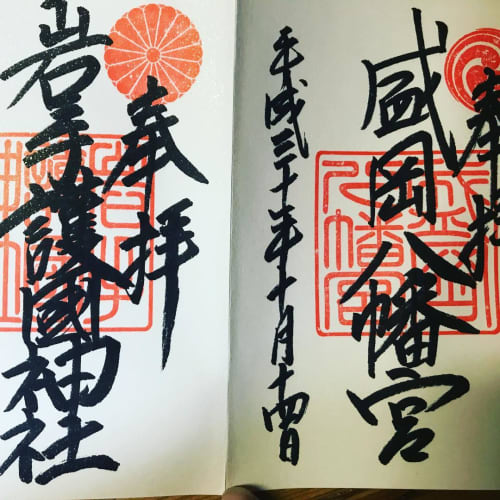 奉拝
盛岡八幡宮
平成三十年十月十四日
奉拝
岩手護國神社